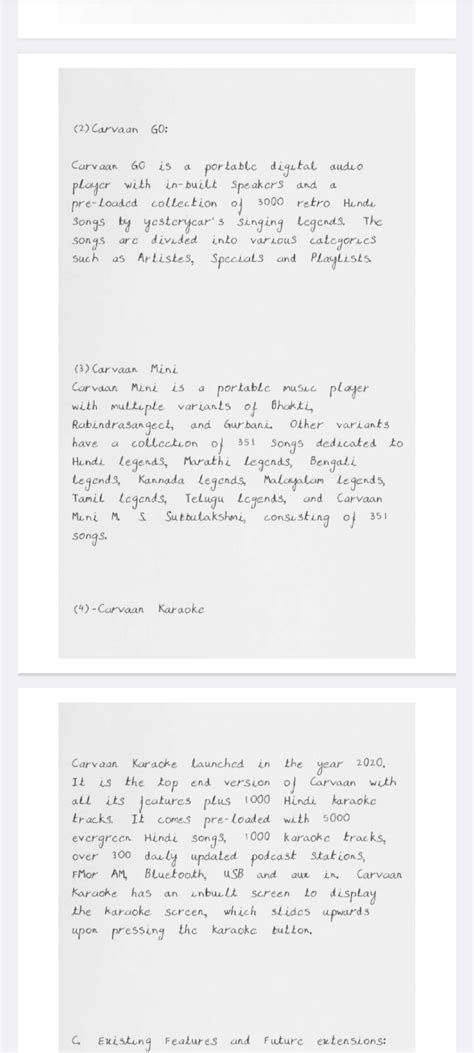 (2) Carvaan GO:
Carvaan GO is a portable digital audio
player with in-built speakers and a
pre-loaded collection of 3000 retro Hindi
songs by yesteryear's singing legends. The
songs are divided into various categories
such as Artistes, Specials and Playlists.
(3) Carvaan Mini
Carvaan Mini is a portable music player
with multiple variants of Bhakti,
Rabindrasangeet, and Gurbani. Other variants
have a collection of 351 songs dedicated to
Hindi legends, Marathi legends, Bengali
legends, Kannada legends, Malayalam legends,
Tamil legends, Telugu legends, and Carvaan
Mini M. S. Subbulakshmi, consisting of 351
songs.
(4)-Carvaan Karaoke
Carvaan Karaoke launched in the year 2020.
It is the top end version of Carvaan with
all its features plus 1000 Hindi karaoke
tracks. It comes pre-loaded with 5000
evergreen Hindi songs, 1000 karaoke tracks,
over 300 daily updated podcast stations,
FMor AM, Bluetooth, USB and aux in. Carvaan
Karaoke has an inbuilt screen to display
the karaoke screen, which slides upwards
upon pressing the karaoke button.
C. Existing Features and Future extensions: